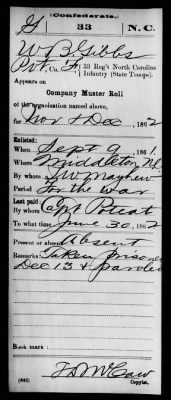 (Confederate.)
G 33 N.C.
W. B. Gibbs
Pvt, Co. F, 33 Reg't North Carolina
Infantry (State Troops).
Appears on
Company Muster Roll
of the organization named above,
for Nov & Dec, 1862
Enlisted:
When Sept 9, 1861.
Where Middleton NC
By whom Mayhew
Period For the War
Last paid:
By whom Capt Poteat
To what time June 30, 1862
Present or absent Absent
Remarks: Taken prisoner
Dec 13 & paroled
Book mark:
(642) Copyist.